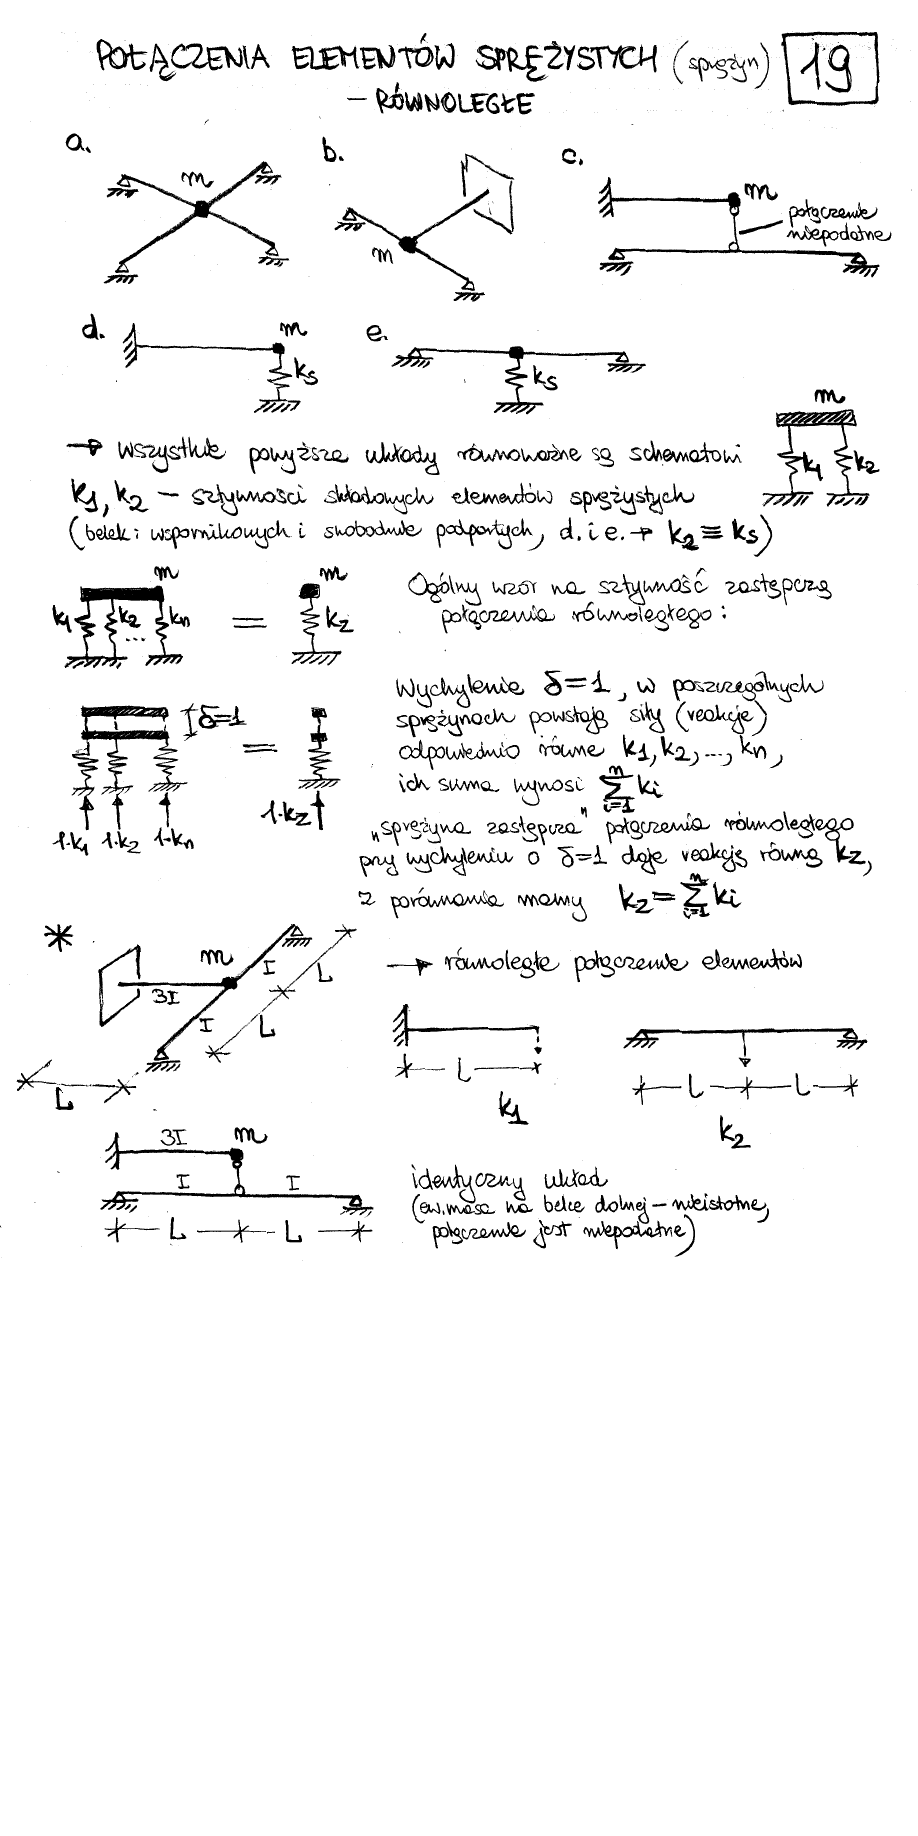 POŁĄCZENIA ELEMENTÓW SPRĘŻYSTYCH (sprężyn) 19
— RÓWNOLEGŁE
a. b. c.
m
m
m
połączenie
niepodatne
d. m e.
ks ks
m
k1 k2
→ wszystkie powyższe układy równoważne są schematowi
k1, k2 — sztywności składowych elementów sprężystych
(belek: wspornikowych i swobodnie podpartych, d. i e. → k2 ≡ ks)
m m
k1 k2 ... kn = kz
Ogólny wzór na sztywność zastępczą
połączenia równoległego:
Wychylenie δ=1, w poszczególnych
sprężynach powstają siły (reakcje)
odpowiednio równe k1, k2, ..., kn,
ich suma wynosi n∑i=1 ki
δ=1 =
1·k1 1·k2 1·kn 1·kz
„sprężyna zastępcza" połączenia równoległego
przy wychyleniu o δ=1 daje reakcję równą kz,
z porównania mamy kz = n∑i=1 ki
*
m
3I I I L L L
→ równoległe połączenie elementów
L L L
k1 k2
3I m
I I
L L
identyczny układ
(ew. masa na belce dolnej – nieistotne,
połączenie jest niepodatne)